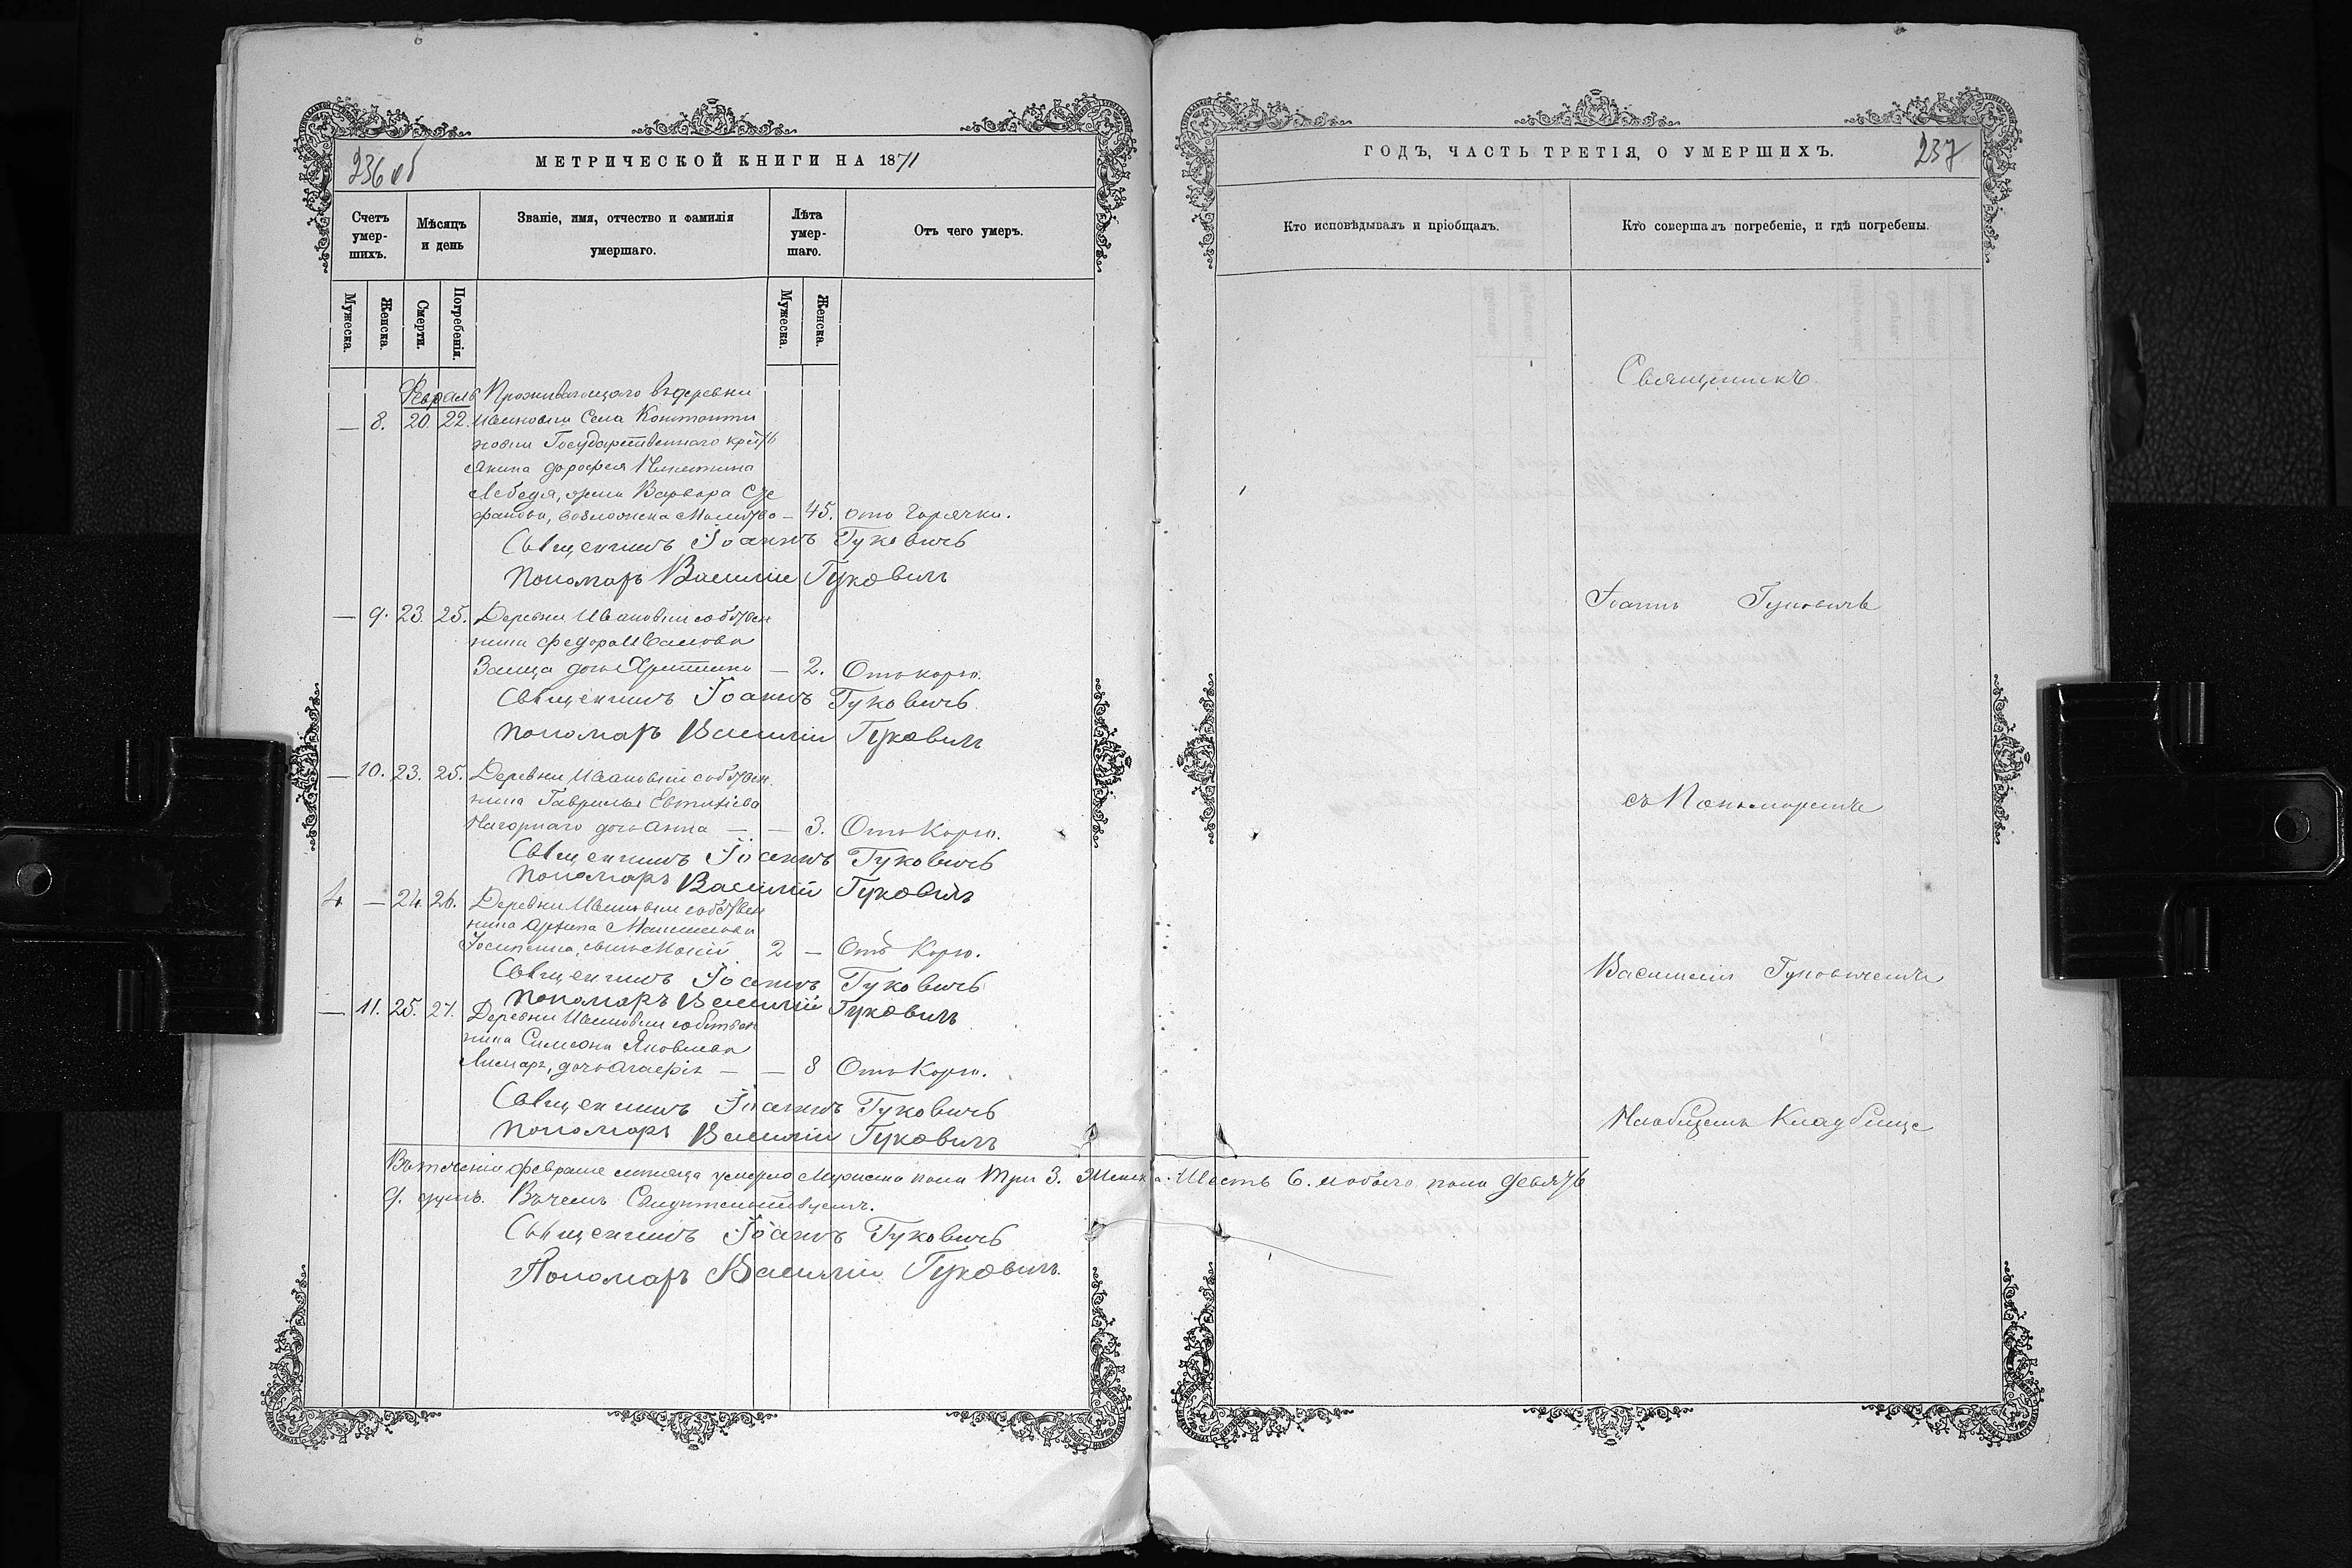 236 об
МЕТРИЧЕСКОЙ КНИГИ НА 1871
Счетъ умер-шихъ.
Мѣсяцъ и день
Званіе, имя, отчество и фамилія умершаго.
Лѣта умер-шаго.
Отъ чего умеръ.
Мужеска.
Женска.
Смерти.
Погребенія.
Мужеска.
Женска.
Февраль Проживающаго въ деревни
— 8. 20. 22. Ивановки Села Константи
новки Государственнаго кресть
янина Дорофея Никитина
Лебедя, жена Варвара Сте
фанова, — 45. отъ Горячки.
Священникъ Іоаннъ Гуковичъ
Пономарь Василій Гуковичъ
— 9. 23. 25. Деревни Ивановки собствен
ника Федора Иванова
Заица дочь Христина — 2. Отъ кори.
Священникъ Іоаннъ Гуковичъ
Пономарь Василій Гуковичъ
— 10. 23. 25. Деревни Ивановки собствен
ника Гаврила Евтихіева
Нагорнаго дочь Анна — — 3. Отъ Кори.
Священникъ Іоаннъ Гуковичъ
Пономарь Василій Гуковичъ
4. — 24. 26. Деревни Ивановки собствен
ника
сынъ 2 — Отъ Кори.
Священникъ Іоаннъ Гуковичъ
Пономарь Василій Гуковичъ
— 11. 25. 27. Деревни Ивановки собствен
ника Симеона Яковлева
Лимаръ, дочь Агафія — — 8 Отъ Кори.
Священникъ Іоаннъ Гуковичъ
Пономарь Василій Гуковичъ
Въ теченіи февраля месяца умерло Мужеска пола Три 3. Женска. Шесть 6. пола девять
9. душъ. Въ чемъ Свидетельствуемъ.
Священникъ Іоаннъ Гуковичъ
Пономарь Василій Гуковичъ.
ГОДЪ, ЧАСТЬ ТРЕТІЯ, О УМЕРШИХЪ.
237
Кто исповѣдывалъ и пріобщалъ.
Кто совершалъ погребеніе, и гдѣ погребены.
Священникъ
Іоаннъ Гуковичъ
съ Пономаремъ
Василіемъ Гуковичемъ
На общемъ Кладбище